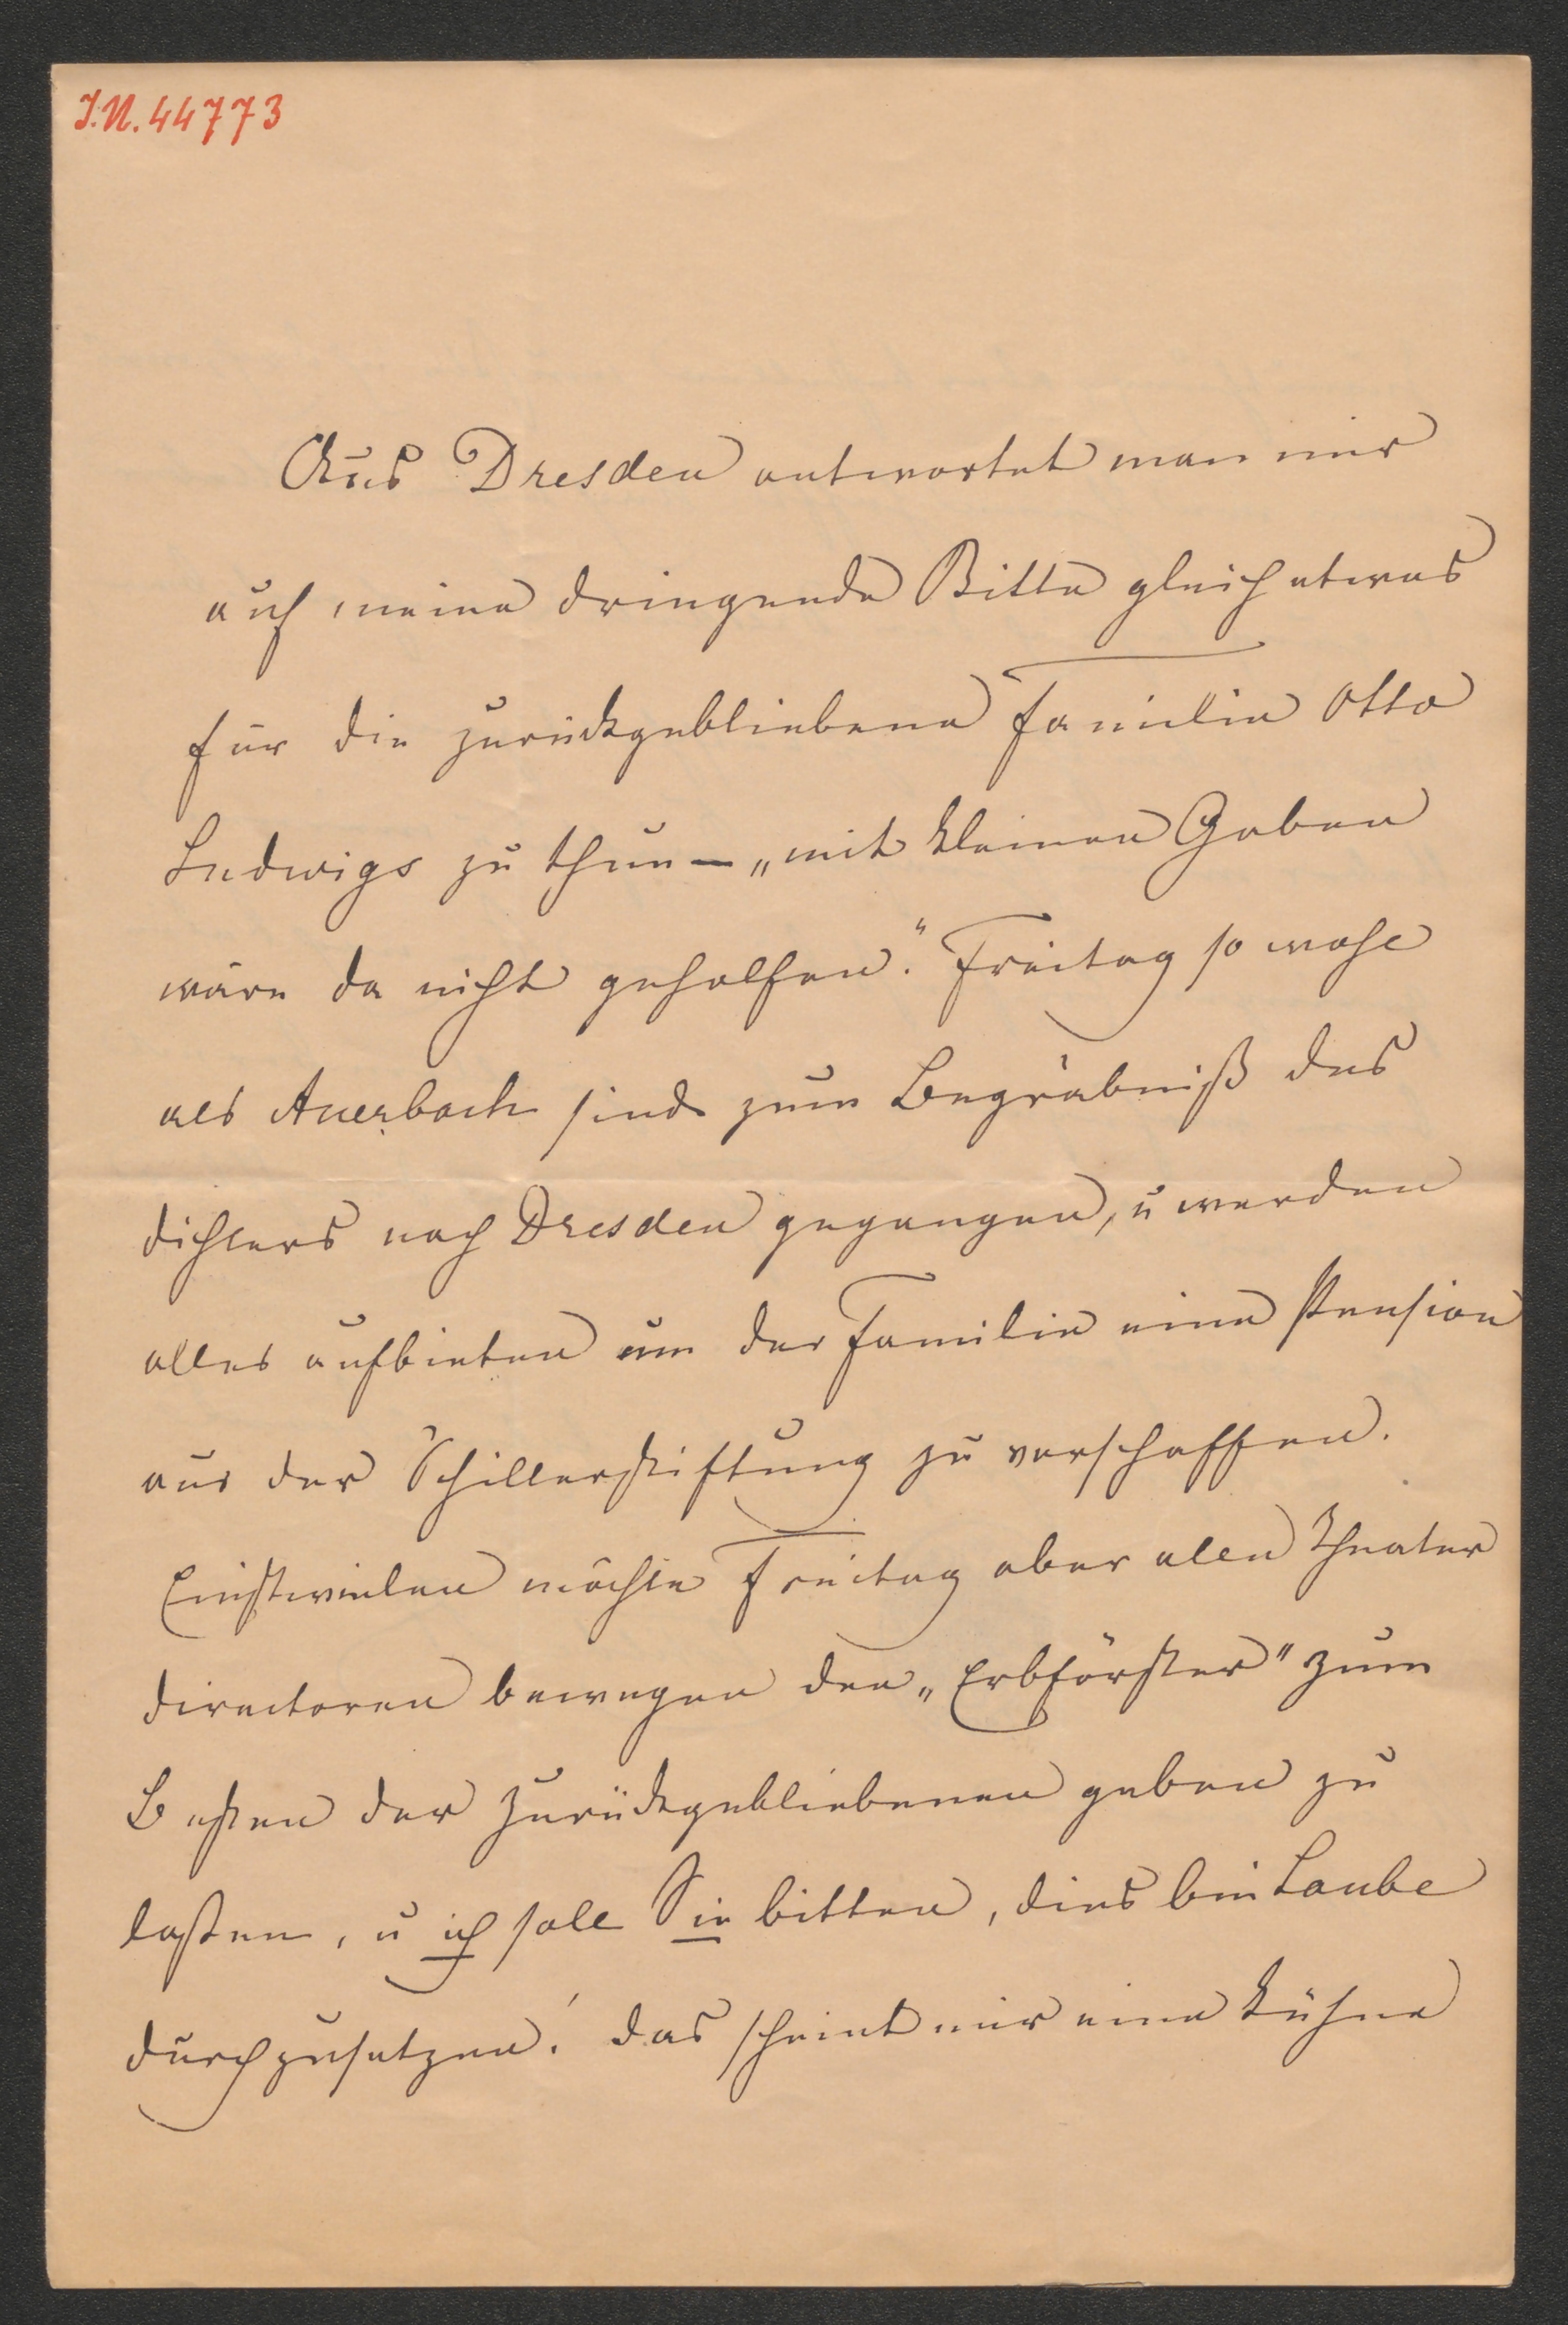 I.N. 44773
Aus Dresden antwortet man mir
auf meine dringende Bitte gleich etwas
für die zurückgebliebene Familie Otto
Ludwigs zu thun – „mit kleinen Gaben
wäre da nicht geholfen." Freitag so wohl
als Auerbach sind zum Begräbniß des
Dichters nach Dresden gegangen, u werden
alles aufbieten um der Familie eine Pension
aus der Schillerstiftung zu verschaffen.
Einstweilen möchte Freitag aber allen Theater
directoren bewegen den „Erbförster" zum
Besten der Zurückgebliebenen geben zu
laßen, u ich soll Sie bitten, dies bei Laube
durchzusetzen! das scheint mir eine kühne